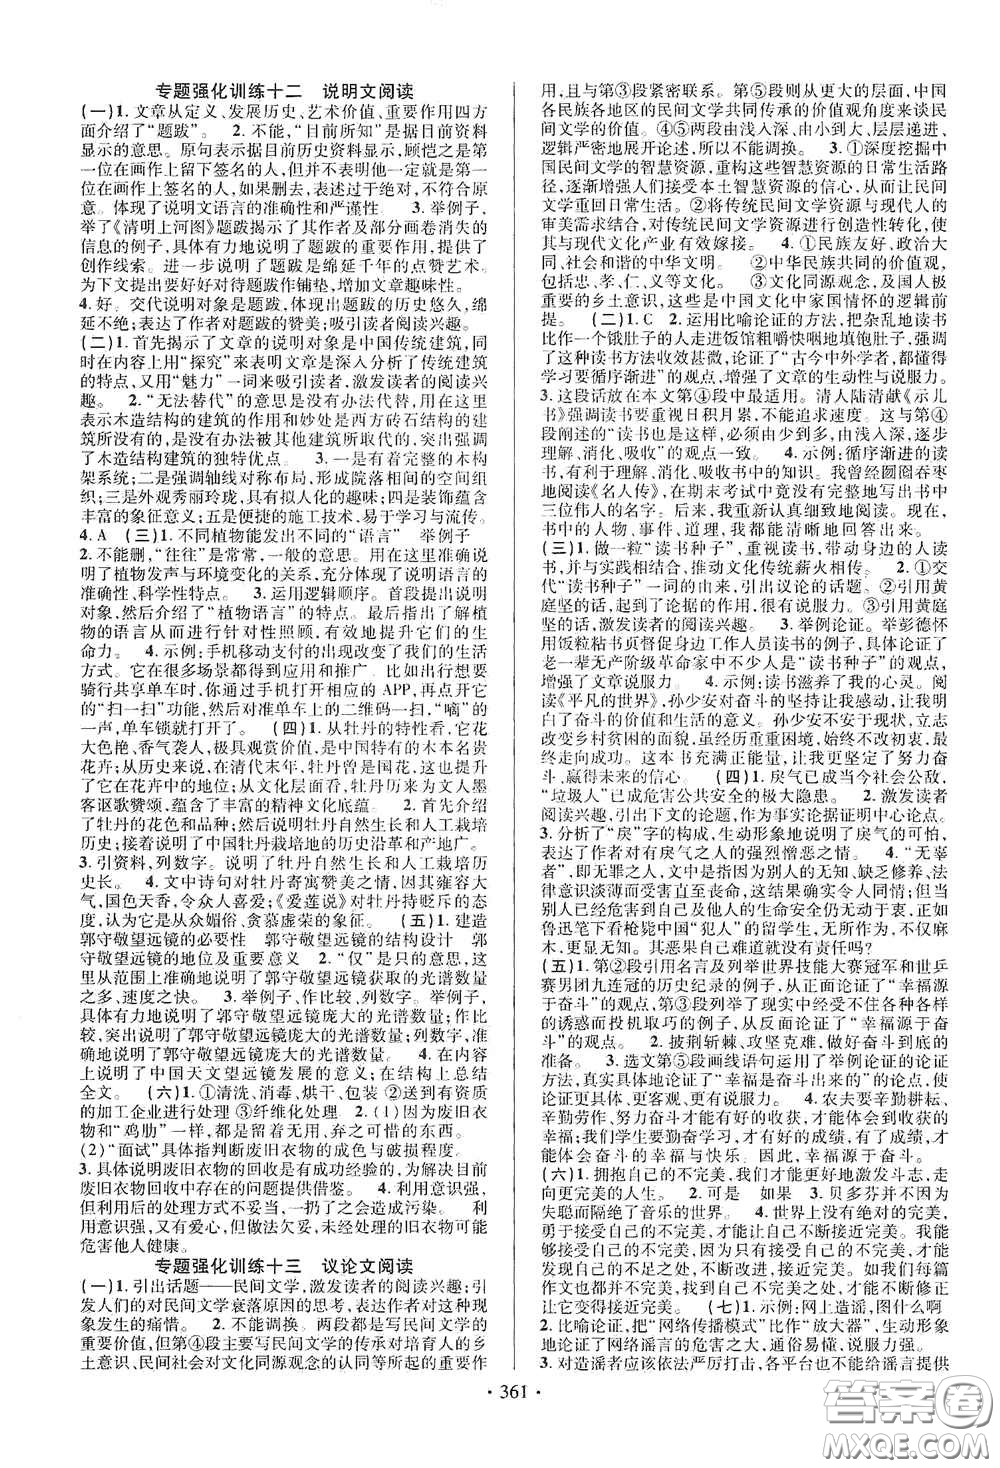 专题强化训练十二　说明文阅读
(一)1. 文章从定义、发展历史、艺术价值、重要作用四方
面介绍了“题跋”。　2. 不能,“目前所知”是据目前资料
显示的意思。原句表示据目前历史资料显示,顾恺之是第
一位在画作上留下签名的人,但并不表明他一定就是第一
位在画作上签名的人,如果删去,表达过于绝对,不符合原
意。体现了说明文语言的准确性和严谨性　3. 举例子,
举了《清明上河图》题跋揭示了其作者及部分画卷消失的
信息的例子,具体有力地说明了题跋的重要作用,提供了
创作线索。进一步说明了题跋是绵延千年的点赞艺术。
为下文提出要好好对待题跋作铺垫,增加文章趣味性。
4. 好。交代说明对象是题跋,体现出题跋的历史悠久,绵
延不绝;表达了作者对题跋的赞美;吸引读者阅读兴趣。
(二)1. 首先揭示了文章的说明对象是中国传统建筑,同
时在内容上用“探究”来表明文章是深入分析了传统建筑
的特点,又用“魅力”一词来吸引读者,激发读者的阅读兴
趣。　2. “无法替代”的意思是没有办法代替,用在这里
表示木造结构的建筑的作用和妙处是西方砖石结构的建
筑所没有的,是没有办法被其他建筑所取代的,突出强调
了木造结构建筑的独特优点。　3. 一是有着完整的木构
架系统;二是强调轴线对称布局,形成院落相间的空间组
织;三是外观秀丽玲珑,具有拟人化的趣味;四是装饰蕴含
丰富的象征意义;五是便捷的施工技术,易于学习与流传。
4. A　(三)1. 不同植物能发出不同的“语言”　举例子
2. 不能删,“往往”是常常,一般的意思。用在这里准确说
明了植物发声与环境变化的关系,充分体现了说明语言的
准确性、科学性特点。　3. 运用逻辑顺序。首段提出说明
对象,然后介绍了“植物语言”的特点。最后指出了解植
物的语言从而进行针对性照顾,有效地提升它们的生
命力。　4. 示例:手机移动支付的出现改变了我们的生活
方式。它在很多场景都得到应用和推广。比如出行想要
骑行共享单车时,你通过手机打开相应的 APP,再点开它
的“扫一扫”功能,然后对准单车上的二维码一扫,“嘀”的
一声,单车锁就打开了。　(四)1. 从牡丹的特性看,它花
大色艳、香气袭人,极具观赏价值,是中国特有的木本名贵
花卉;从历史来看,在清代末年,牡丹曾是国花,这说明了
它在花卉中的地位;从文化层面看,牡丹历来为文人墨
客讴歌赞颂,蕴含了丰富的精神文化底蕴。　2. 首先介绍
了牡丹的花色和品种;然后说明牡丹自然生长和人工栽培
历史;接着说明了中国牡丹栽培地的历史沿革和产地广。
3. 引资料,列数字。说明了牡丹自然生长和人工栽培历
史长。　4. 文中诗句对牡丹寄寓赞美之情,因其雍容大
气、国色天香,令众人喜爱;《爱莲说》对牡丹持贬斥的态
度,认为它是从众媚俗、贪慕虚荣的象征。　(五)1. 建造
郭守敬望远镜的必要性　郭守敬望远镜的结构设计　郭
守敬望远镜的地位及重要意义　2. “仅”是只的意思,这
里从范围上准确地说明了郭守敬望远镜获取的光谱数量
之多,速度之快。　3. 举例子、作比较、列数字。举例子,
具体有力地说明了郭守敬望远镜庞大的光谱数量;作比
较,突出说明了郭守敬望远镜庞大的光谱数量;列数字,准
确地说明了郭守敬望远镜庞大的光谱数量。　4. 在内容
上说明了中国天文望远镜发展的意义;在结构上总结
全文。　(六)1. ①清洗、消毒、烘干、包装 ②送到有资质
的加工企业进行处理 ③纤维化处理　2. (1)因为废旧衣
物和“鸡肋”一样,都是留之无用、弃之可惜的东西。
(2)“面试”具体指判断废旧衣物的成色与破损程度。
3. 具体说明废旧衣物的回收是有成功经验的,为解决目前
废旧衣物回收中存在的问题提供借鉴。　4. 利用意识强,
但利用后的处理方式不妥当,一扔了之会造成污染。　利
用意识强,又有爱心,但做法欠妥,未经处理的旧衣物可能
危害他人健康。
专题强化训练十三　议论文阅读
(一)1. 引出话题——民间文学,激发读者的阅读兴趣;引
发人们的对民间文学衰落原因的思考,表达作者对这种现
象发生的痛惜。　2. 不能调换。两段都是写民间文学的
重要价值,但第④段主要写民间文学的传承对培育人的乡
土意识、民间社会对文化同源观念的认同等所起的重要作
用,且与第③段紧密联系。第⑤段则从更大的层面,中国
各民族各地区的民间文学共同传承的价值观角度来谈民
间文学的价值。④⑤两段由浅入深、由小到大,层层递进,
逻辑严密地展开论述,所以不能调换。　3. ①深度挖掘中
国民间文学的智慧资源,重构这些智慧资源的日常生活路
径,逐渐增强人们接受本土智慧资源的信心,从而让民间
文学重回日常生活。②将传统民间文学资源与现代人的
审美需求结合,对传统民间文学资源进行创造性转化,使
其与现代文化产业有效嫁接。　4. ①民族友好,政治大
同、社会和谐的中华文明。　②中华民族共同的价值观,
包括忠、孝、仁、义等文化。　③文化同源观念,及国人极
重要的乡土意识,这些是中国文化中家国情怀的逻辑前
提。　(二)1. C　2. 运用比喻论证的方法,把杂乱地读书
比作一个饿肚子的人走进饭馆粗嚼快咽地填饱肚子,强调
了这种读书方法收效甚微,论证了“古今中外学者,都懂得
学习要循序渐进”的观点,增强了文章的生动性与说服力。
3. 这段话放在本文第④段中最适合。清人陆清献《示儿
书》强调读书要重视日积月累,不能追求速度。这与第④
段阐述的“读书也是这样,必须由少到多,由浅入深,逐步
理解、消化、吸收”的观点一致。　4. 示例:循序渐进的读
书法,有利于理解、消化、吸收书中的知识。我曾经囫囵吞枣
地阅读《名人传》,在期末考试中竟没有完整地写出书中
三位伟人的名子。后来,我重新认真细致地阅读。现在,
书中的人物、事件、道理,我都能清晰地回答出来。
(三)1. 做一粒“读书种子”,重视读书,带动身边的人读
书,并与实践相结合,推动文化传统薪火相传。　2. ①交
代“读书种子”一词的由来,引出议论的话题。②引用黄
庭坚的话,起到了论据的作用,很有说服力。③引用黄庭
坚的话,激发读者的阅读兴趣。　3. 举例论证。举彭德怀
用饭粒粘书页督促身边工作人员读书的例子,具体论证了
老一辈无产阶级革命家中不少人是“读书种子”的观点,
增强了文章说服力。　4. 示例:读书滋养了我的心灵。阅
读《平凡的世界》,孙少安对奋斗的坚持让我感动,让我明
白了奋斗的价值和生活的意义。孙少安不安于现状,立志
改变乡村贫困的面貌,虽经历重重困境,始终不改初衷,最
终走向成功。这本书充满正能量,让我更坚定了努力奋
斗、赢得未来的信心。　(四)1. 戾气已成当今社会公敌,
“垃圾人”已成危害公共安全的极大隐患。　2. 激发读者
阅读兴趣,引出下文的论题;作为事实论据证明中心论点。
3. 分析了“戾”字的构成,生动形象地说明了戾气的可怕,
表达了作者对有戾气之人的强烈憎恶之情。　4. “无辜
者”,即无罪之人,文中是指因为别人的无知、缺乏修养、法
律意识淡薄而受到侵害直至丧命,这种结果实令人同情;但当
别人已经危害到自己及其他人的生命安全仍无所作为,好似
鲁迅笔下看枪毙中国“犯人”的留学生,无所作为,不仅麻
木,更无知。其恶果自己难道就没有责任吗?
(五)1. 第②段引用名言及列举世界技能大赛冠军和世乒
赛男团九连冠的历史纪录的例子,从正面论证了“幸福源
于奋斗”的观点,第③段列举了现实中经受不住各种各样
的诱惑而投机取巧的例子,从反面论证了“幸福源于奋
斗”的观点。　2. 披荆斩棘、攻坚克难,做好奋斗到底的
准备。　3. 选文第⑤段画线语句运用了举例论证的论证
方法,真实具体地论证了“幸福是奋斗出来的”的观点,使
论证更具体、更客观、更有说服力。　4. 农夫要辛勤耕耘、
辛勤劳作,努力奋斗才能有好的收获,才能体会到收获的
幸福;我们学生要勤奋学习,才有好的成绩,有了成绩,才
能体会奋斗的幸福与快乐。因此,幸福源于奋斗。
(六)1. 拥抱自己的不完美,我们才能更好地激发斗志,走
向更完美的人生。　2. 可是　如果　3. 贝多芬并没有因为
失聪而隔绝了音乐的世界。　4. 示例:世上没有完美,
勇于接受自己的不完美,才能让自己不断接近完美。我能
够接受自己的不完美,才能正视自己的不完美,才能发现
自己的不足之处,不断改进,接近完美。如我们每篇
作文都会有不足之处,正视它的不完美,才能不断修正
让它变得接近完美。　(七)1. 示例:网上造谣,图什么啊
2. 比喻论证,把“网络传播模式”比作“放大器”,生动形象
地论证了网络谣言的危害之大,通俗易懂,说服力强。
3. 对造谣者应该依法严厉打击,各平台也不能给谣言提供
· 361 ·
答案圈
MXQE.COM